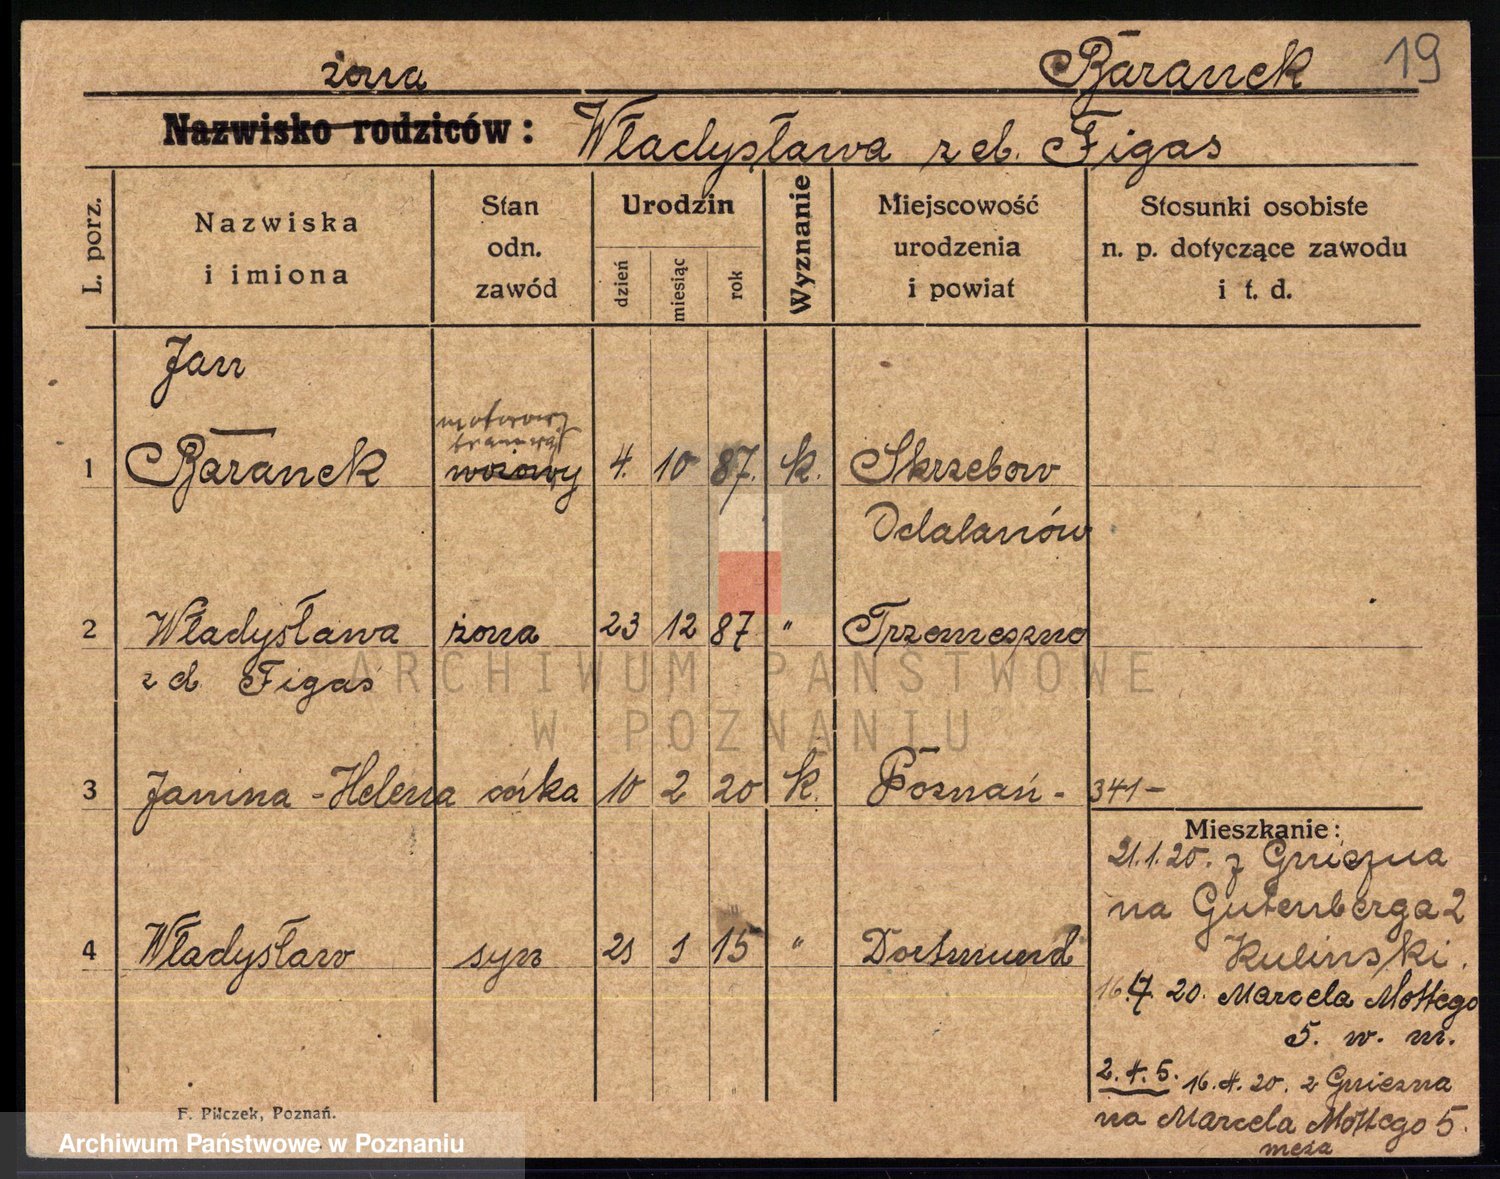 żona Baranek 19
Nazwisko rodziców: Władysława z d. Figas
L. porz.
Nazwiska i imiona
Stan odn. zawód
Urodzin
dzień
miesiąc
rok
Wyznanie
Miejscowość urodzenia i powiat
Stosunki osobiste n. p. dotyczące zawodu i t. d.
Jan
motorowy
tramwaj
1 Baranek woźowy 4. 10 87. k. Skrzebow
Odalanów
2 Władysława żona 23 12 87 " Trzemeszno
z d. Figas
ARCHIWUM PAŃSTWOWE
W POZNANIU
3 Janina-Helena córka 10 2 20 k. Poznań - 341-
Mieszkanie:
21.1.20. z Gniezna
na Gutenberga 2
Kulinski.
4 Władysław syn 21 1 15 " Dortmund
16.4. 20. Marcela Mottego
5. w. m.
2.4.5. 16.4.20. z Gniezna
na Marcela Mottego 5.
męża
F. Pilczek, Poznań.
Archiwum Państwowe w Poznaniu